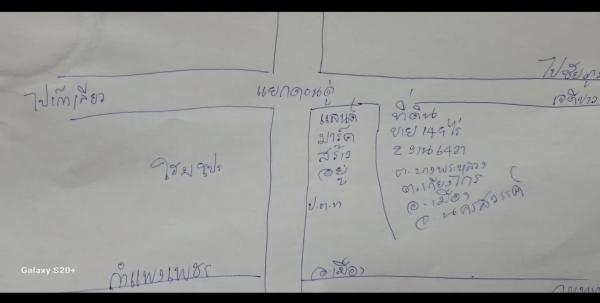 ไปชัยภูมิ
ไปเก้าเลี้ยว
แยกดอนดู่
เจดีย์ขาว
แลนด์
มาร์ค
สร้าง
อยู่
ป.ต.ท
ที่ดิน
ขาย 149 ไร่
2 งาน 64 วา
ต. บางพระหลวง
ต. เกรียงไกร
อ. เมือง
จ. นครสวรรค์
โฮมโปร
กำแพงเพชร
อ เมือง
Galaxy S20+